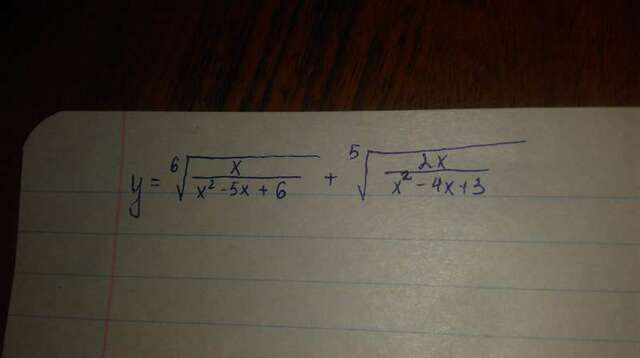 y = ⁶√(x / (x² - 5x + 6)) + ⁵√(2x / (x² - 4x + 3))